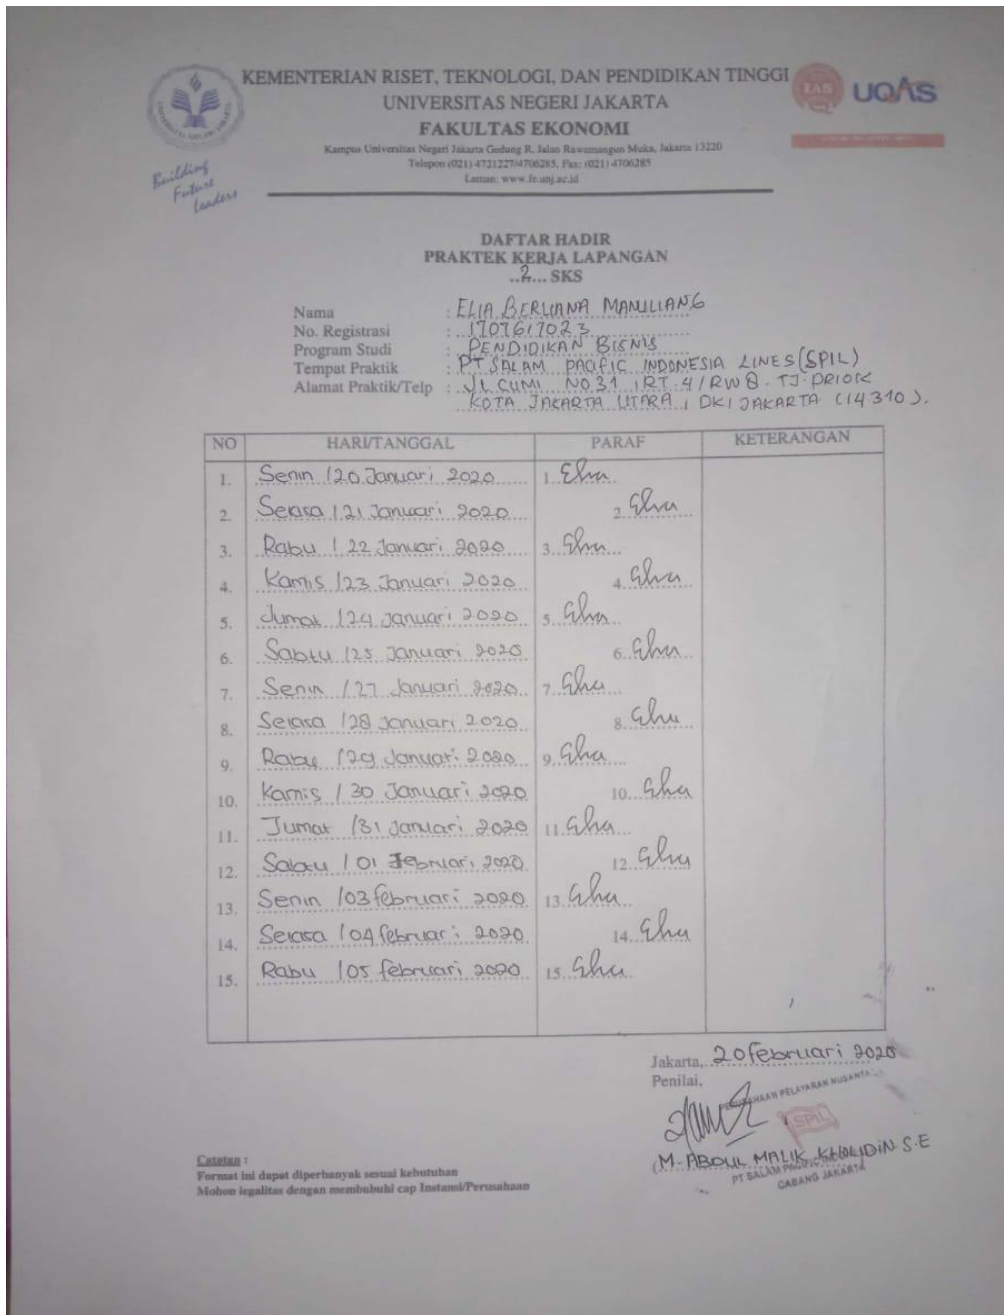 KEMENTERIAN RISET, TEKNOLOGI, DAN PENDIDIKAN TINGGI
UNIVERSITAS NEGERI JAKARTA
FAKULTAS EKONOMI
Kampus Universitas Negeri Jakarta Gedung R, Jalan Rawamangun Muka, Jakarta 13220
Telepon (021) 4721227/4706285, Fax: (021) 4706285
Laman: www.fe.unj.ac.id
Building
Future
Leaders
IAS UQAS
DAFTAR HADIR
PRAKTEK KERJA LAPANGAN
..2... SKS
Nama : ELIA BERLIANA MANULIANG
No. Registrasi : 1707617023
Program Studi : PENDIDIKAN BISNIS
Tempat Praktik : PT SALAM PACIFIC INDONESIA LINES (SPIL)
Alamat Praktik/Telp : JL CUMI NO 31 RT. 4 / RW 8. TJ. PRIOK
KOTA JAKARTA UTARA, DKI JAKARTA (14310).
NO HARI/TANGGAL PARAF KETERANGAN
1. Senin /20 Januari 2020 1. Elia
2. Selasa /21 Januari 2020 2. Elia
3. Rabu / 22 Januari 2020 3. Elia
4. Kamis /23 Januari 2020 4. Elia
5. Jumat /24 Januari 2020 5. Elia
6. Sabtu /25 Januari 2020 6. Elia
7. Senin /27 Januari 2020 7. Elia
8. Selasa /28 Januari 2020 8. Elia
9. Rabu /29 Januari 2020 9. Elia
10. Kamis / 30 Januari 2020 10. Elia
11. Jumat /31 Januari 2020 11. Elia
12. Sabtu / 01 Februari 2020 12. Elia
13. Senin /03 februari 2020 13. Elia
14. Selasa /04 februari 2020 14. Elia
15. Rabu /05 februari 2020 15. Elia
Jakarta, 20 februari 2020
Penilai,
PERUSAHAAN PELAYARAN
SPIL
(M. ABDUL MALIK KHOLIDIN S.E
PT SALAM
CABANG JAKARTA
Catatan :
Format ini dapat diperbanyak sesuai kebutuhan
Mohon legalitas dengan membubuhi cap Instansi/Perusahaan